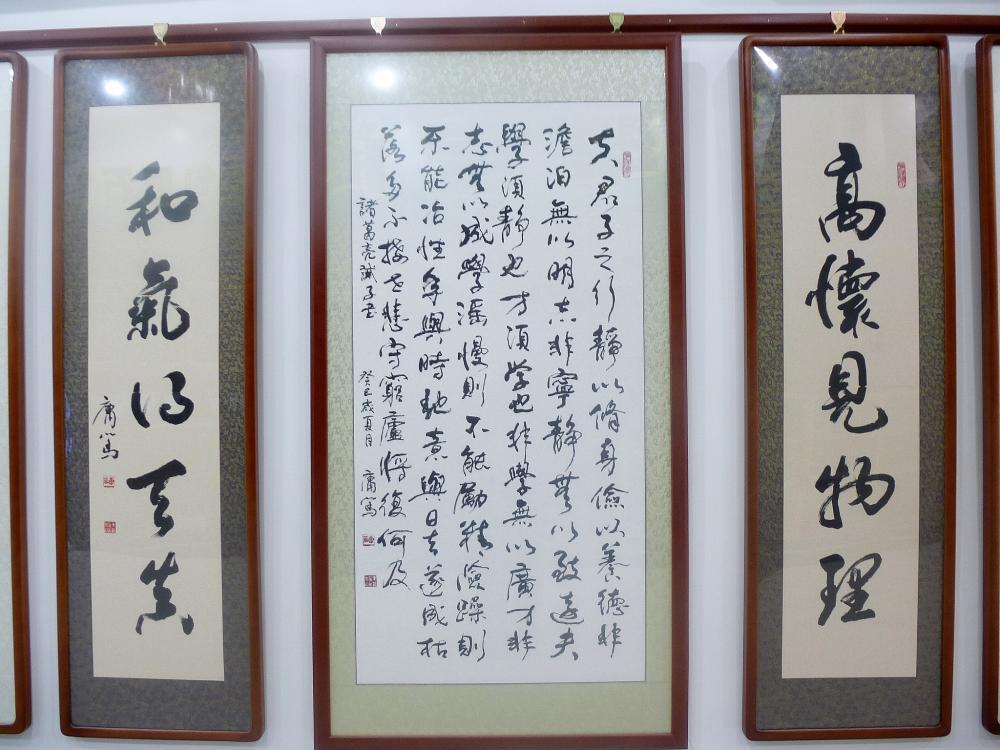 高懷見物理
夫君子之行靜以脩身儉以養德非
澹泊無以明志非寧靜無以致遠夫
學須靜也才須学也非學無以廣才非
志無以成學滛慢則不能勵精險躁則
不能冶性年與時馳意與日去遂成枯
落多不接世悲守窮廬將復何及
諸葛亮誡子書 癸巳歲夏月 庸篤
和氣得天真
庸篤